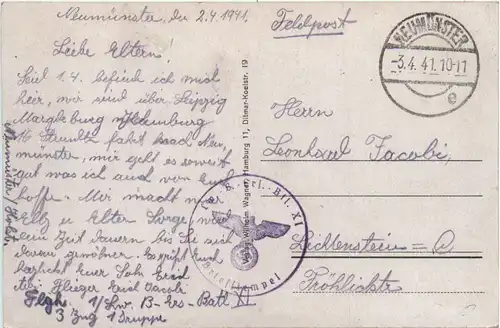 Neumünster, den 2.4.1941,
Liebe Eltern!
Seit 1.4. befinde ich mich
hier, wir sind über Leipzig
Magdeburg
16 Stunden fahrt nach Neu
münster, mir geht es soweit
gut was ich auch von Euch
hoffe. Mir macht nur
Elly u Eltern Sorge, wird
ein Zeit dauern bis Sie sich
daran gewöhnen. Es grüßt Euch
herzlichst Euer Sohn Erich
Flieger Erich Jacobi
1/Lw. B-Ers-Batl. XI
3 Zug 1 Gruppe
Neumünster/Holst.
Verlag Wilhelm Wagner, Hamburg 11, Ditmar-Koelstr. 19
Feldpost
NEUMÜNSTER
-3.4.41.10-11
e
Herrn
Leonhard Jacobi,
Lichtenstein=C
Fröhlichstr
Briefstempel